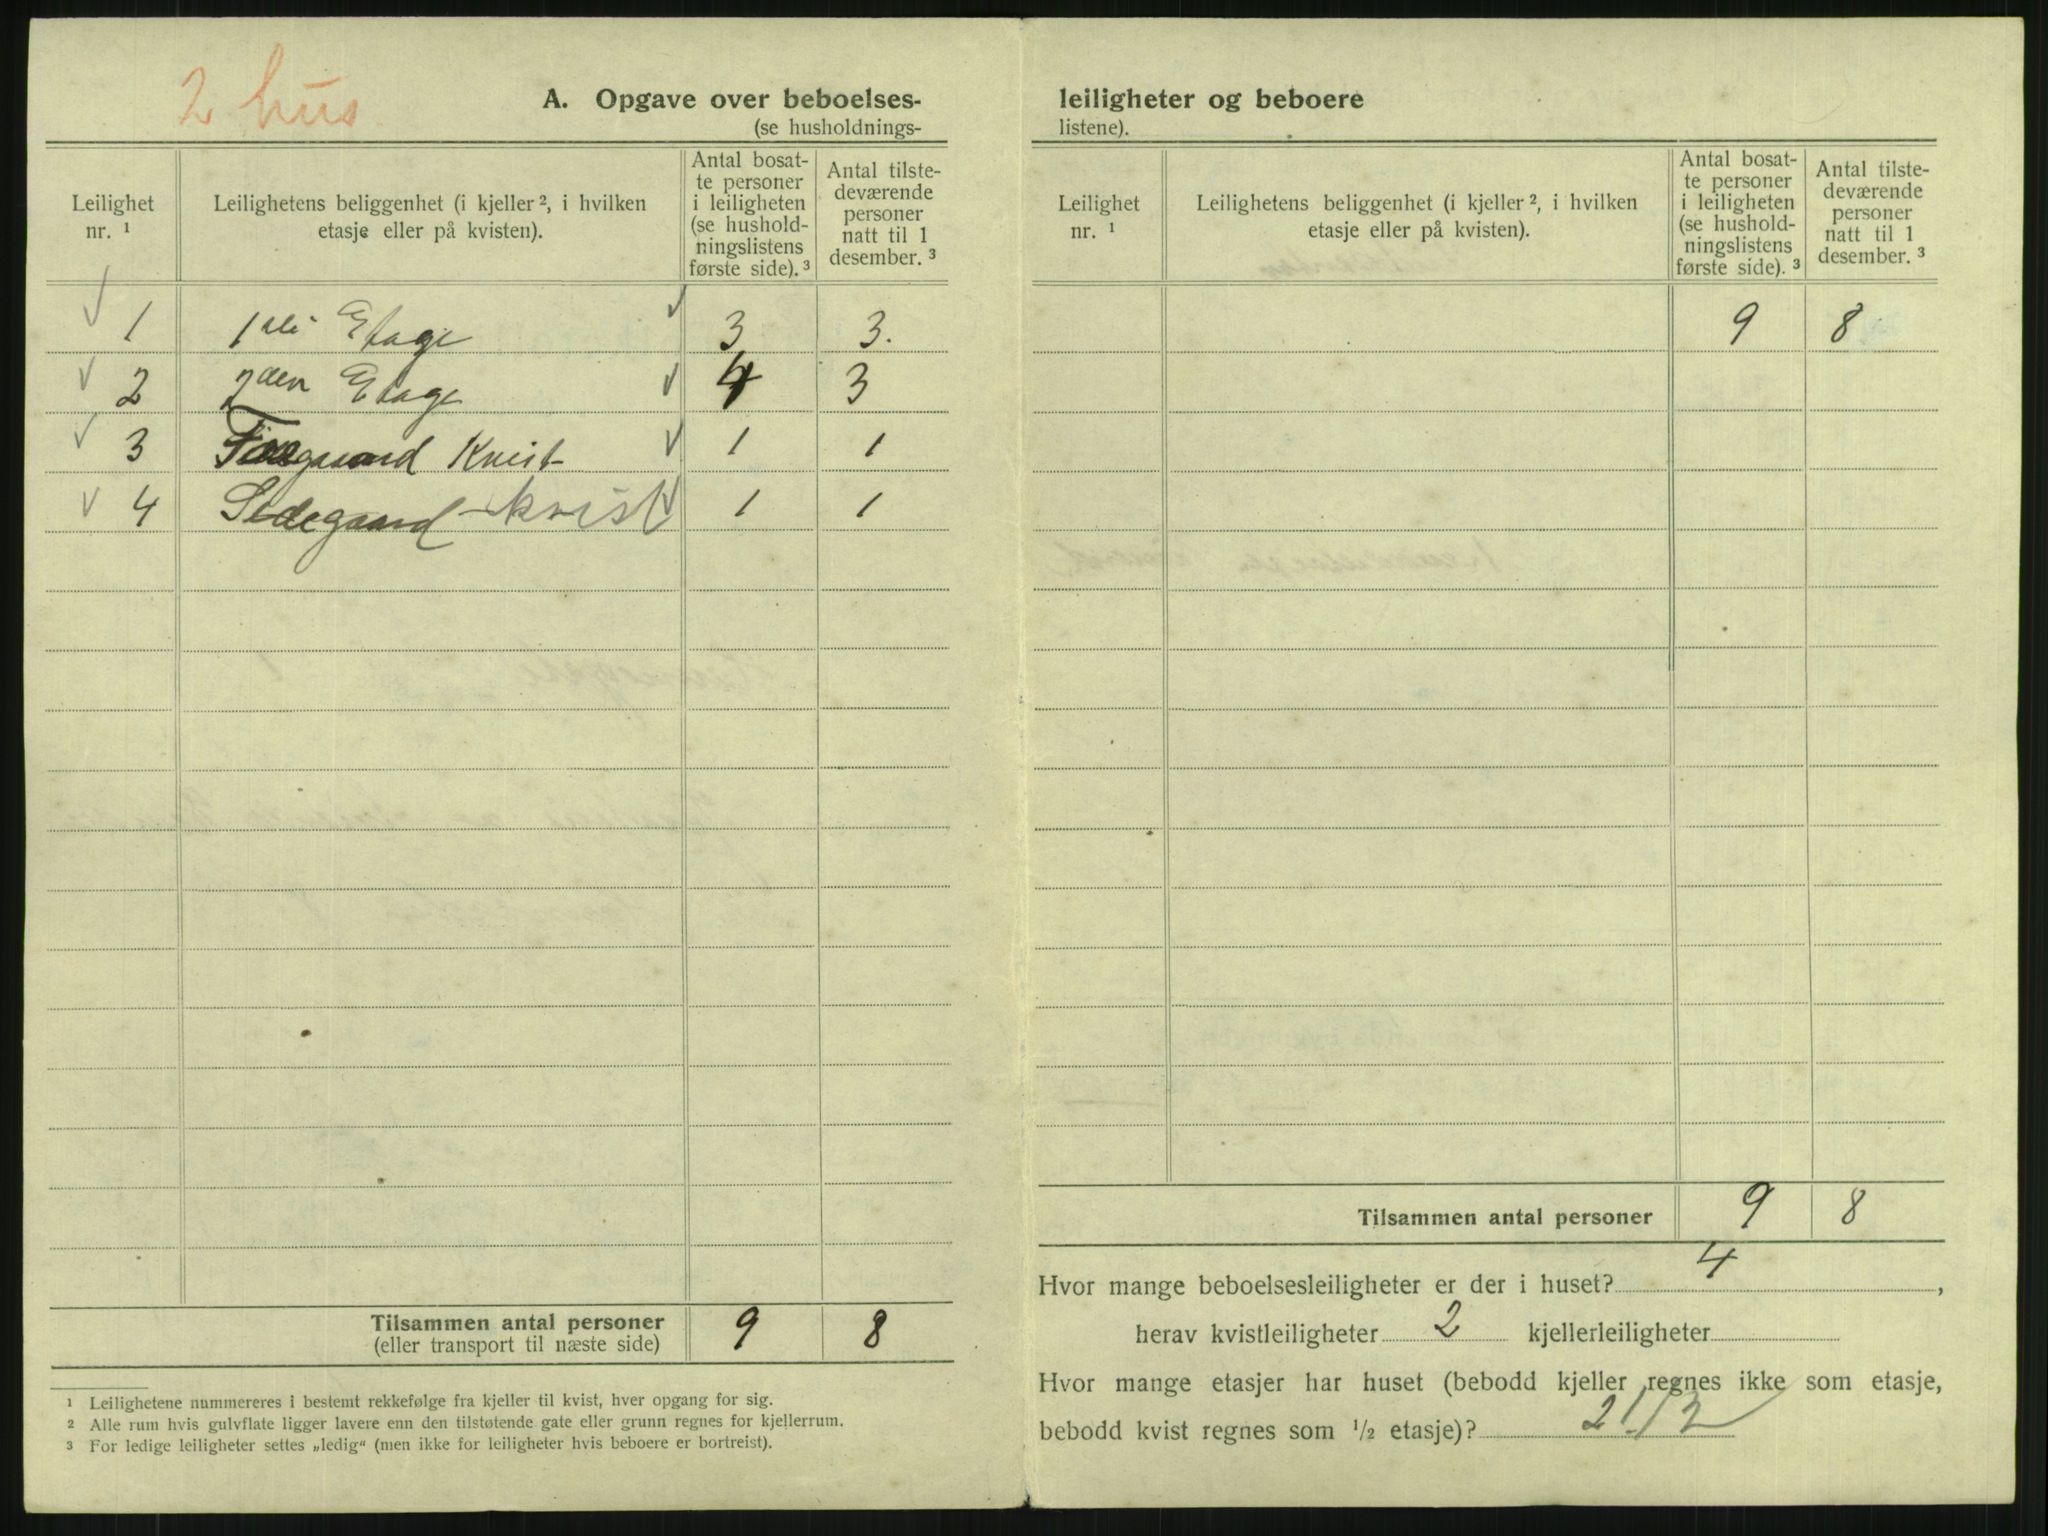 2 hus
A. Opgave over beboelses-
(se husholdnings-
Leilighet nr. ¹
Leilighetens beliggenhet (i kjeller ², i hvilken etasje eller på kvisten).
Antal bosat-
te personer
i leiligheten
(se hushold-
ningslistens
første side). ³
Antal tilste-
deværende
personer
natt til 1
desember. ³
1 1ste Etage 3 3.
2 2den Etage 4 3
3 Forgaard Kvist 1 1
4 Sidegaard - kvist 1 1
Tilsammen antal personer 9 8
(eller transport til næste side)
¹ Leilighetene nummereres i bestemt rekkefølge fra kjeller til kvist, hver opgang for sig.
² Alle rum hvis gulvflate ligger lavere enn den tilstøtende gate eller grunn regnes for kjellerrum.
³ For ledige leiligheter settes „ledig“ (men ikke for leiligheter hvis beboere er bortreist).
leiligheter og beboere
listene).
Leilighet nr. ¹
Leilighetens beliggenhet (i kjeller ², i hvilken etasje eller på kvisten).
Antal bosat-
te personer
i leiligheten
(se hushold-
ningslistens
første side). ³
Antal tilste-
deværende
personer
natt til 1
desember. ³
9 8
Tilsammen antal personer 9 8
Hvor mange beboelsesleiligheter er der i huset? 4,
herav kvistleiligheter 2 kjellerleiligheter
Hvor mange etasjer har huset (bebodd kjeller regnes ikke som etasje,
bebodd kvist regnes som ½ etasje)? 2 1/2